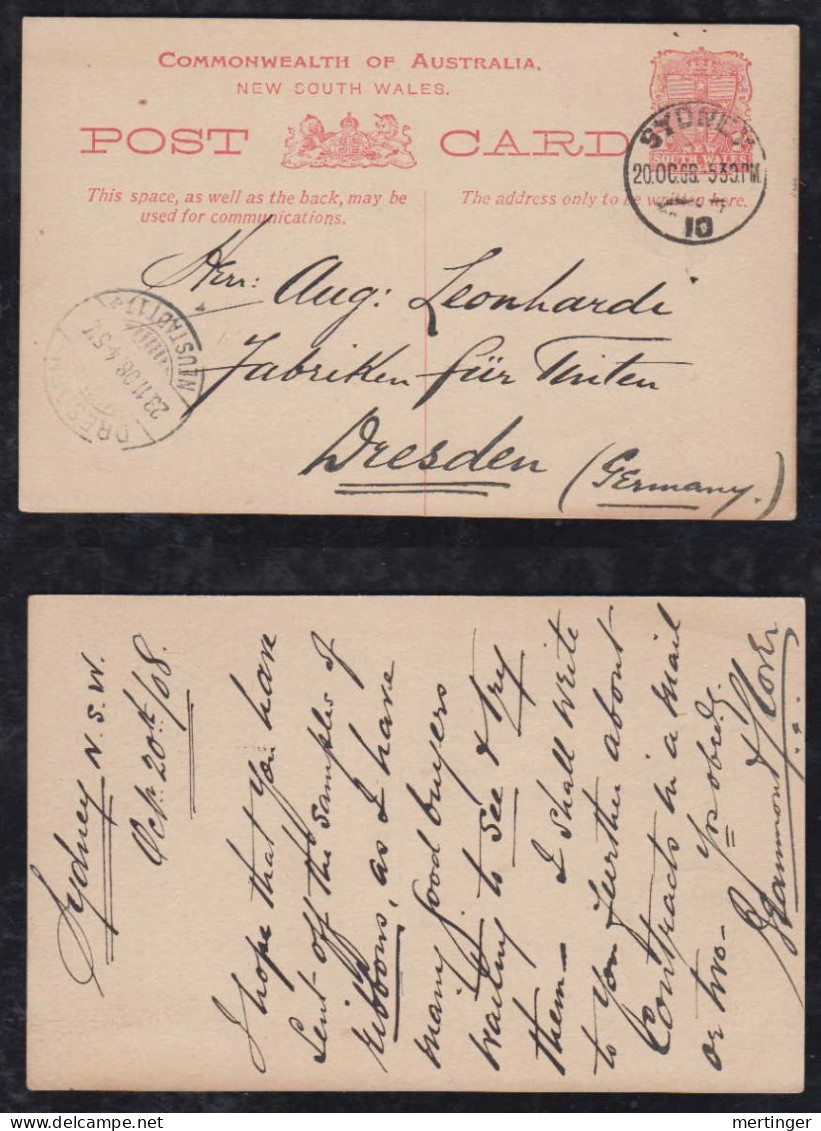 COMMONWEALTH OF AUSTRALIA.
NEW SOUTH WALES.
POST CARD
SOUTH WALES
SYDNEY
20.OC.08. 530.PM.
10
This space, as well as the back, may be
used for communications.
The address only to be written here.
Herrn: Aug: Leonhardi
Fabriken für Tinten
Dresden
(Germany.)
DRESDEN
NEUSTADT
23.11.08. 4-5
Sydney N.S.W.
Oct. 20th/08.
I hope that you have
sent off the samples of
ribbons, as I have
many good buyers
waiting to see & try
them - I shall write
to you further about
Contracts in a mail
or two -
Hammond & Clover
mertinger
www.delcampe.net